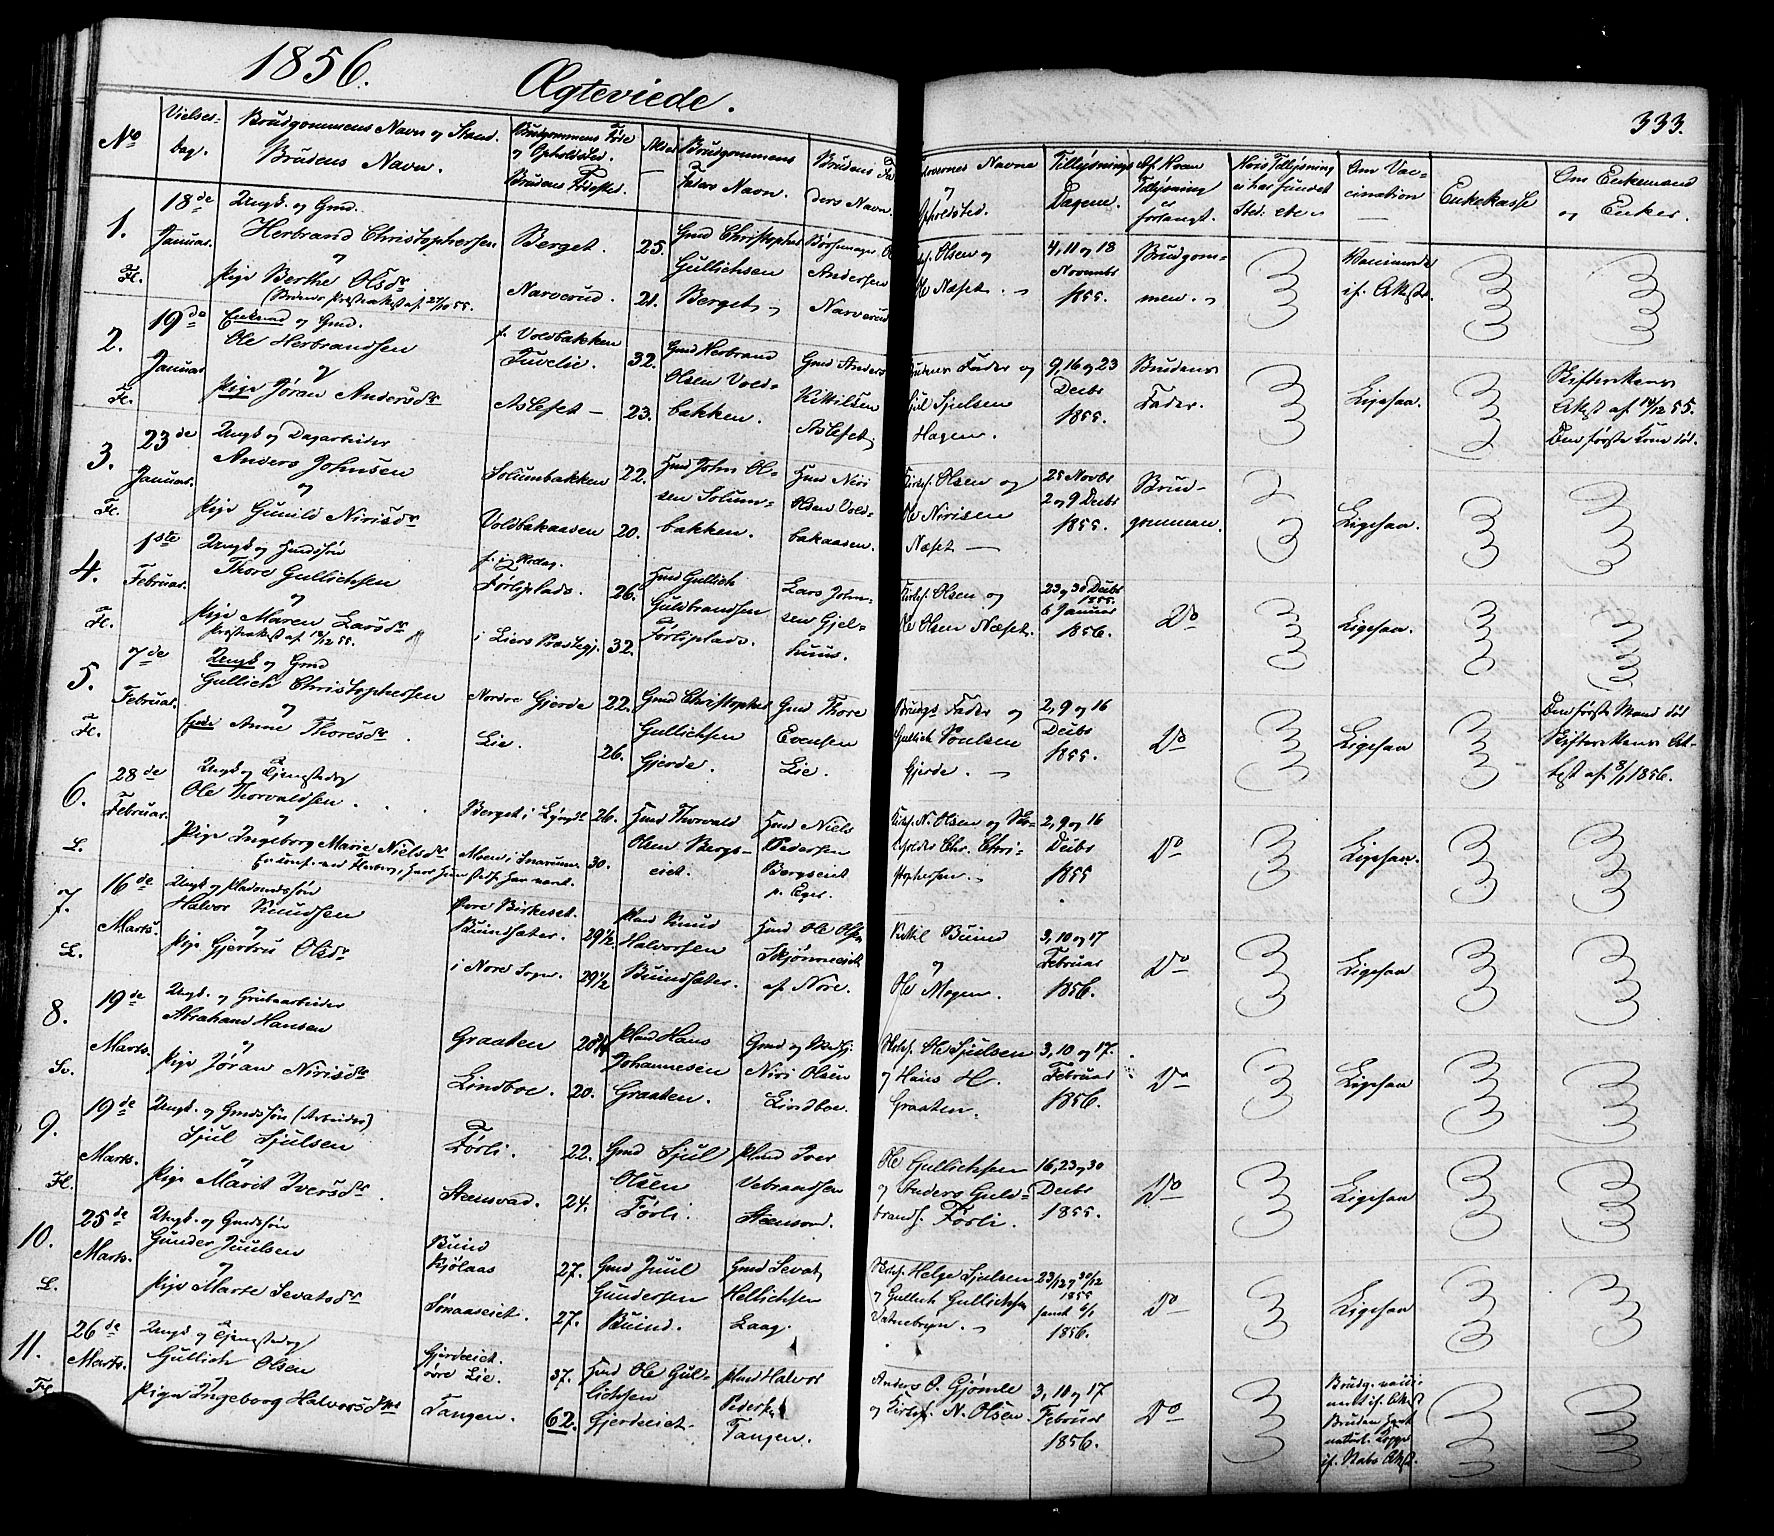 1856. Ægteviede.
333.
No
Vielses-
dag.
Brudgommens Navn og Stand.
Brudens Navn.
Brudgommens Føde
og Opholdssted.
Brudens Fødested.
Alder
Brudgommens
Faders Navn.
Brudens Fa
ders Navn.
Forlovernes Navne
og
Opholdsted.
Tillysnings
Dagene.
Af hvem
Tillysning
er
forlangt.
Hvis Tillysning
ei har fundet
Sted: etc.
Om Vac-
cination
Enkekasse
Om Enkemænd
og Enker.
1.
Fl.
18de
Januar.
Ungk. og Gmd.
Herbrand Christophersen
og
Pige Berthe Olsdr
Berget.
Narverud.
25.
21.
Gmd Christopher
Gullichsen
Berget
Andersen
Narverud
Olsen og
Ole Næset.
4, 11 og 18
Novembr
1855.
Brudgom-
men.
Vaccinerede
if. Attest.
2.
Fl.
19de
Januar
Enkemd og Gmd.
Ole Herbrandsen
og
Pige Jøran Andersdr
f. Voldbakken
Tuvelie.
Aslefet
32.
23.
Gmd Herbrand
Olsen Vold-
bakken.
Gmd Anders
Kittilsen
Aslefet
Brudens Fader og
Sjul Sjulsen
Hagen.
9, 16 og 23
Decbr
1855.
Brudens
Fader.
Ligesaa.
Skifterettens
Attest af 14/12 55.
Den første Kone død.
3.
Fl.
23de
Januar.
Ungk og Dagarbeider
Anders Johnsen
og
Pige Gunild Nirisdr
Solumbakken
Voldbakaasen
22.
20.
Hmd John Ol-
sen Solum-
bakken.
Hmd Niri
Olsen Vold-
bakaasen.
Kirkes. Olsen og
Ole Nirisen
Næset
25 Novbr
2 og 9 Decbr
1855.
Brud-
gommen.
Ligesaa.
4.
Fl.
1ste
Februar.
Ungk og Hmdssøn
Thore Gullichsen
og
Pige Maren Larsdr
Præsteattest af 14/12 55.
Førliplads.
i Liers Præstegj.
26.
32.
Hmd Gullich
Guldbrandsen
Førliplads.
Lars John-
sen Gjel-
huus.
Kirkes. Olsen og
Ole Olsen Næset.
23 og 30 Decbr
1855.
6 Januar
1856.
Do
Ligesaa.
5.
Fl.
7de
Februar.
Ungk og Gmd
Gullich Christophersen
og
Anne Thoresdr
Nordre Gjerde
Lie.
22.
26.
Gmd Christopher
Gullichsen
Gjerde.
Gmd Thore
Evensen
Lie.
Brudgs Fader og
Gullich Poulsen
Gjerde.
2, 9 og 16
Decbr
1855.
Do
Ligesaa
Den første Mand død
Skifterettens At-
test af 8/1 1856.
6.
L.
28de
Februar.
Ungk og Tjenestedrg
Ole Thorvaldsen
og
Pige Ingeborg Marie Nielsdr
Berget i Lyngdl
Moen i Snarum
26.
30.
Hmd Thorvald
Olsen Bergs-
eiet.
Hmd Niels
Pedersen
Bergseiet
p. Eger.
Kirkes. N. Olsen og
Chr. Chri-
stophersen.
2, 9 og 16
Decbr
1855
Do
Ligesaa.
7.
L.
16de
Marts.
Ungk og Pladsmandssøn
Halvor Knudsen
og
Pige Gjertru Olsdr
Øvre Birkeset.
Buindsæter.
i Nore Sogn.
29 1/2.
29 1/2
Plmd Knud
Halvorsen
Buindsæter.
Hmd Ole Olsen
Skjønneeiet
af Nore.
Kittil Buind
og
Ole Mogen.
3, 10 og 17
Februar
1856.
Do
Ligesaa
8.
Sv.
19de
Marts.
Ungk. og Grubearbeider
Abraham Hansen
og
Pige Jøran Nirisdr
Graaten
Lindboe.
20 3/4
20.
Plmd Hans
Johannesen
Graaten.
Gmd og
Niri Olsen
Lindboe.
Ole Sjulsen
og Hans H.
Graaten.
3, 10 og 17.
Februar
1856.
Do
Ligesaa
9.
Fl.
19de
Marts.
Ungk. og Gmdssøn (Arbeider)
Sjul Sjulsen
og
Pige Marit Iversdr
Førli.
Steensvad.
22.
24.
Gmd Sjul
Olsen
Førli.
Plmd Iver
Vebrandsen
Steensvad.
Ole Gullichsen
og Anders Guld-
brands. Førli.
16, 23 og 30
Decbr
1855.
Do
Ligesaa
10.
L.
25de
Marts.
Ungk. og Gmdssøn
Gunder Juulsen
og
Pige Marte Sevatsdr
Buind
Kjølaas
27.
27.
Gmd Juul
Gundersen
Buind.
Gmd Sevat
Hellichsen
Laag.
Helge Sjulsen
og Gullich Gullichsen
Vatnebryn.
23/12 og 30/12
1855
samt 6/1
1856.
Do
Ligesaa
11.
Fl.
26de
Marts.
Ungk og Tjenestedrg
Gullich Olsen
og
Pigen Ingeborg Halvorsdtr
Gjerdeeiet.
øvre Lie.
Tangen.
37.
62.
Hmd Ole Gul-
lichsen
Gjerdeeiet
Plmd Halvor
Peders
Tangen.
Anders O. Gjømle
og Kirkes. N. Olsen
3, 10 og 17
Februar
1856.
Do
Brudg. vacci-
neret if. Attest
Bruden havt
naturl. Kopper
if. Attest.